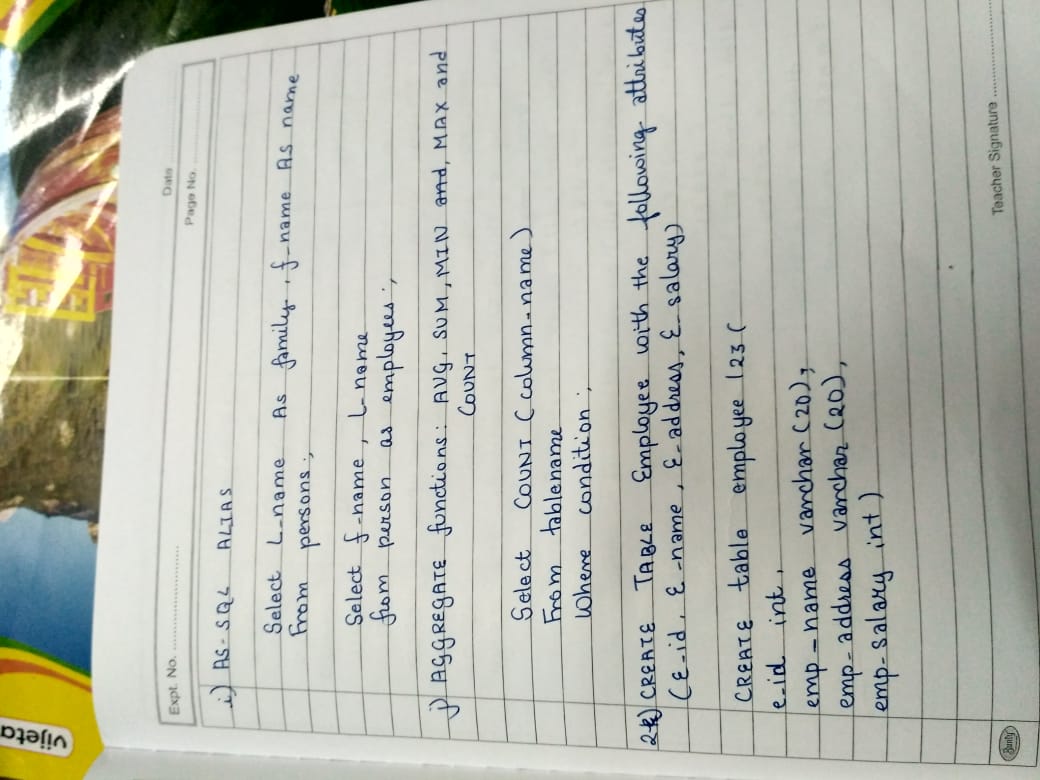 vijeta
Expt. No.
Date
Page No.
i) AS-SQL ALIAS
Select L-name As family, f-name AS name
From persons;
Select f-name, L-name
from person as employees;
j) AGGREGATE functions: AVG, SUM, MIN and, MAX and
COUNT
Select COUNT (column-name)
From tablename
Where condition;
2k) CREATE TABLE Employee with the following attributes
(E-id, E-name, E-address, E-salary)
CREATE table employee 123 (
e-id int,
emp-name varchar (20),
emp-address varchar (20),
emp-salary int)
Bunty
Teacher Signature